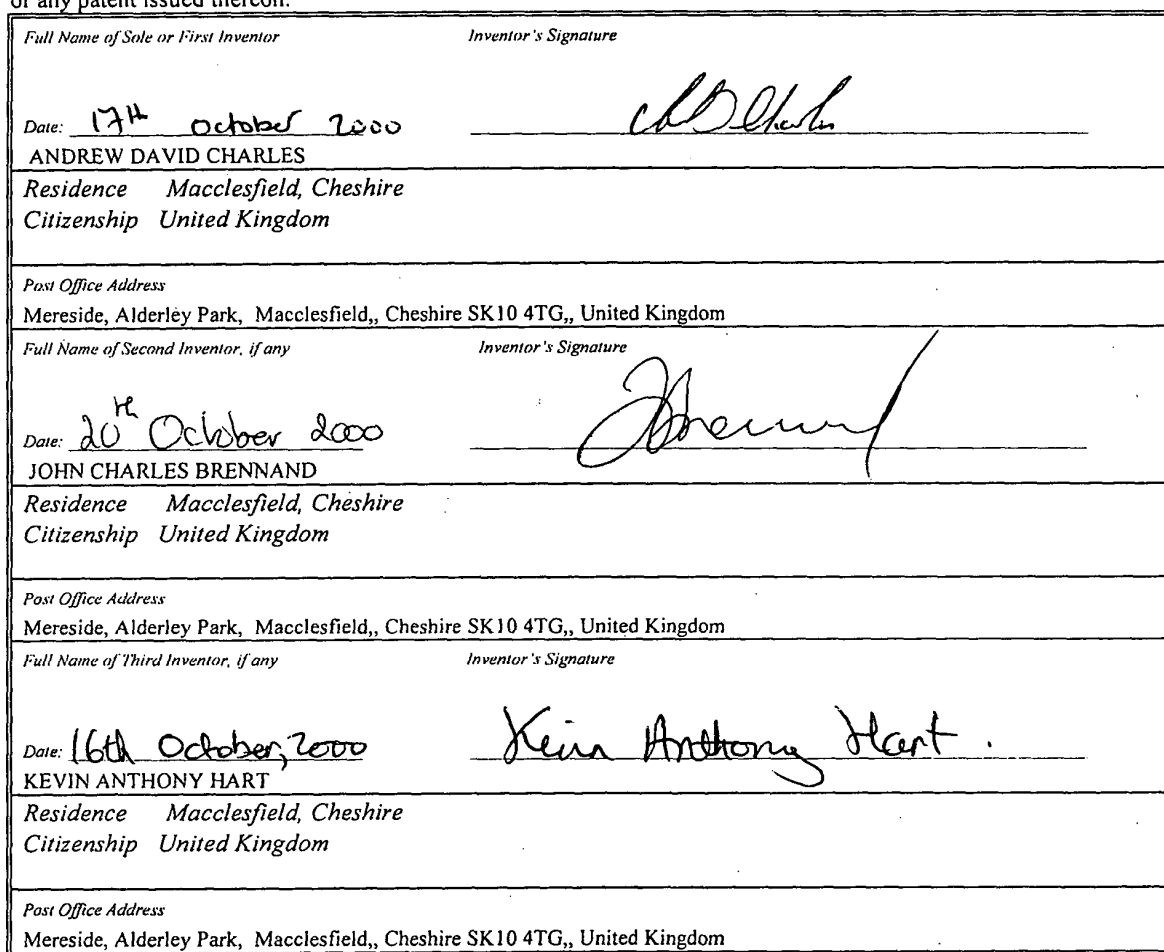 or any patent issued thereon.
Full Name of Sole or First Inventor Inventor's Signature
Date: 17th October 2000
ANDREW DAVID CHARLES
Residence Macclesfield, Cheshire
Citizenship United Kingdom
Post Office Address
Mereside, Alderley Park, Macclesfield,, Cheshire SK10 4TG,, United Kingdom
Full Name of Second Inventor, if any Inventor's Signature
Date: 20th October 2000
JOHN CHARLES BRENNAND
Residence Macclesfield, Cheshire
Citizenship United Kingdom
Post Office Address
Mereside, Alderley Park, Macclesfield,, Cheshire SK10 4TG,, United Kingdom
Full Name of Third Inventor, if any Inventor's Signature
Date: 16th October, 2000 Kevin Anthony Hart.
KEVIN ANTHONY HART
Residence Macclesfield, Cheshire
Citizenship United Kingdom
Post Office Address
Mereside, Alderley Park, Macclesfield,, Cheshire SK10 4TG,, United Kingdom